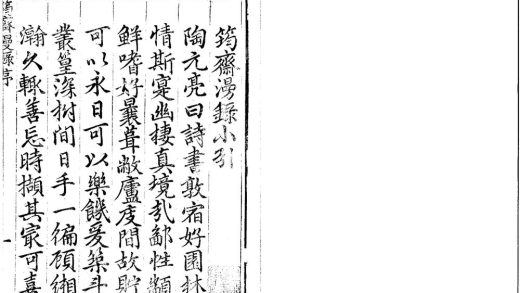 筠齋漫錄小引
陶元亮曰詩書敦宿好園林
情斯寔幽棲真境㢤鄙性顓
鮮嗜好曩葺敝廬庋間故貯
可以永日可以樂饑爰築斗
叢篁深樹間日手一徧顧緗
瀚久輒善忘時擷其㝡可喜
筠齋漫錄序
一